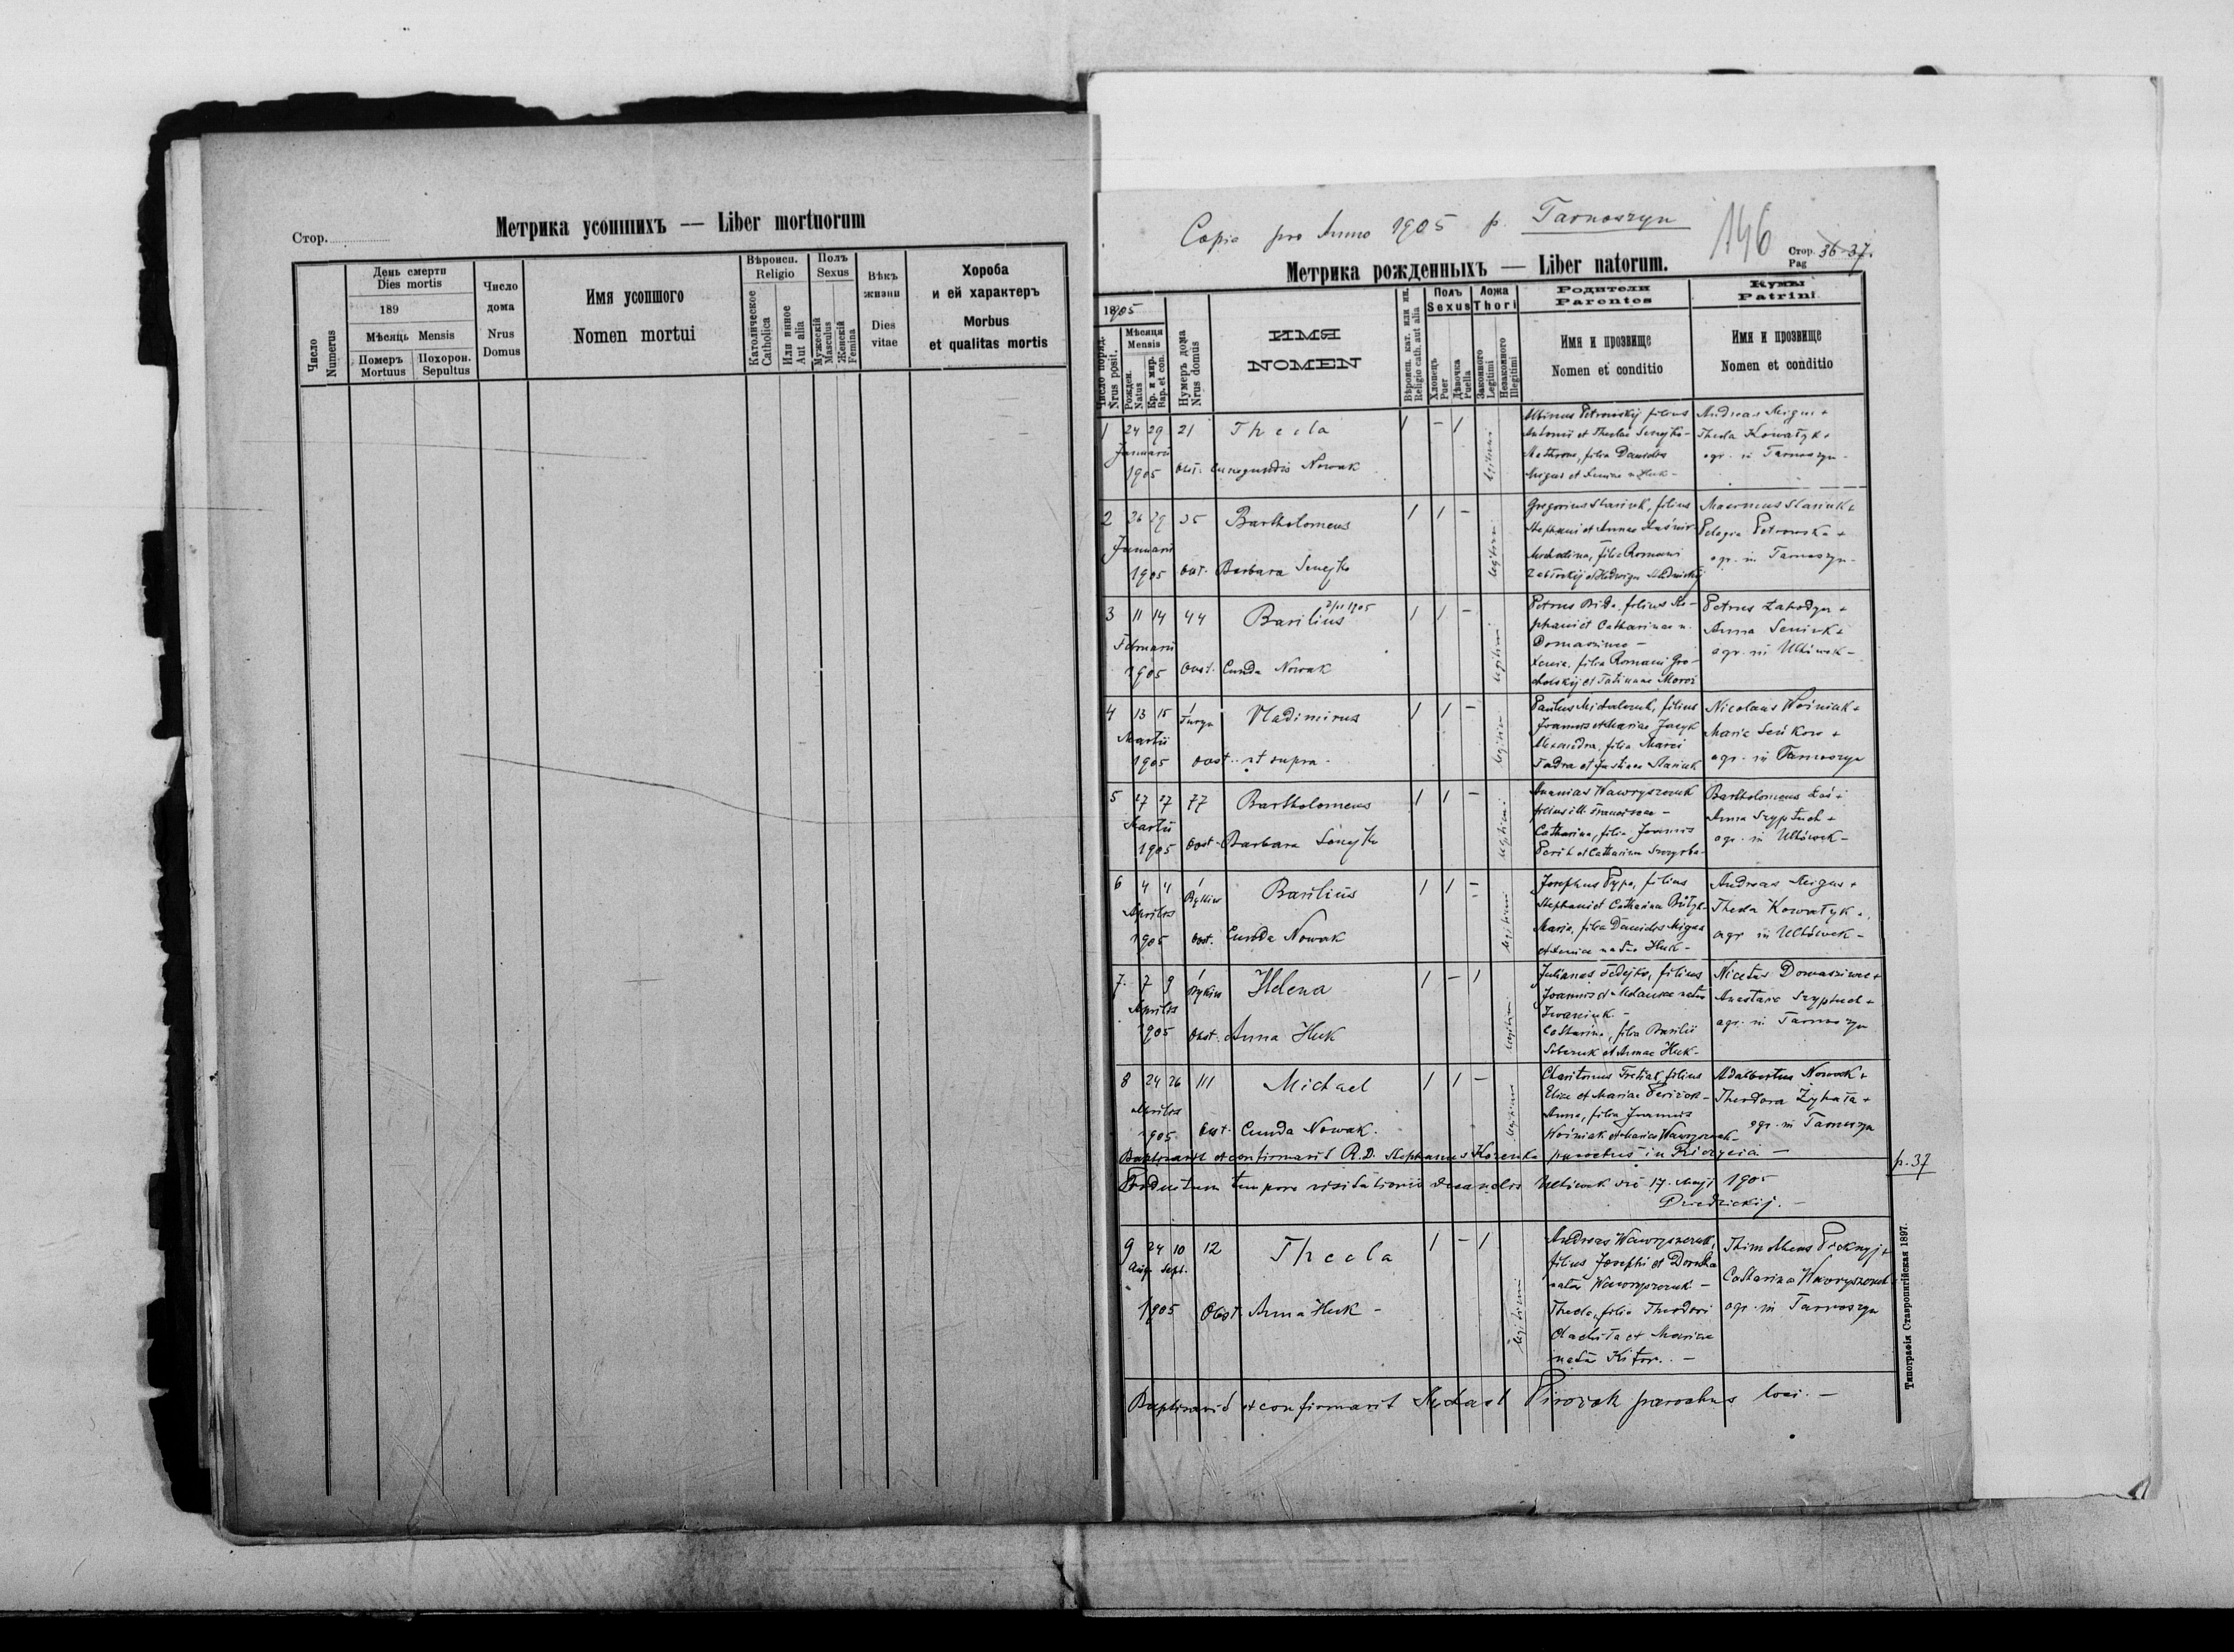 Стор.
Метрика усопшихъ — Liber mortuorum
Число
Numerus
День смерти
Dies mortis
189
Мѣсяць Mensis
Померъ
Mortuus
Похорон.
Sepultus
Число
дома
Nrus
Domus
Имя усопшого
Nomen mortui
Вѣроисп.
Religio
Католическое
Catholica
Или инное
Aut alia
Полъ
Sexus
Мужескій
Masculus
Женскій
Femina
Вѣкъ
жизни
Dies
vitae
Хороба
и ей характеръ
Morbus
et qualitas mortis
Copia pro Anno 1905 p. Tarnoszyn
146
Метрика рожденныхъ — Liber natorum.
Стор. 36-37.
Pag
1905
Число поряд.
Nrus posit.
Мѣсяця
Mensis
Рожден.
Natus
Кр. и мир.
Bap. et con.
Нумеръ дома
Nrus domus
ИМЯ
NOMEN
Вѣроисп. кат. или ин.
Religio cath. aut alia
Полъ
Sexus
Хлопецъ
Puer
Дѣвочка
Puella
Ложа
Thori
Законного
Legitimi
Незаконного
Illegitimi
Родители
Parentes
Имя и прозвище
Nomen et conditio
Кумы
Patrini
Имя и прозвище
Nomen et conditio
1 24 29 21 Thecla 1 - 1 legitimi
Januarii
1905 obst. Cunegundis Nowak
Petrowskij filius
Antonii et Theclae Senejko -
filia Danielis
Migas et Huk -
Andreas Migus +
Thecla Kowałyk +
agr. in Tarnoszyn -
2 26 29 35 Bartholomeus 1 1 - legitimi
Januarii
1905 obst. Barbara Senejko
Gregorius Stasiuk, filius
Stephani et Annae
filia Romani
et Hedwigis
Stasiuk +
Pelagia Petrowska +
agr. in Tarnoszyn -
3 11 14 44 Basilius 2/11 1905 1 1 - legitimi
Februarii
1905 obst. Cunda Nowak
Petrus Bida, filius Ste-
phani et Catharinae n.
Domasiwec -
Xenia, filia Romani Gro-
cholskij et Tatianae Moroz
Petrus Zahodyn +
Anna Seniuk +
agr. in Ulhówek -
4 13 15 1 Turyn Vladimirus 1 1 - legitimi
Martii
1905 obst. ut supra -
Paulus Michalczuk, filius
Joannis et Mariae Jacyk
Alexandra, filia Marci
Fadra et Justinae Stasiuk
Nicolaus Woźniuk +
Maria Seńkow +
agr. in Tarnoszyn
5 27 27 77 Bartholomeus 1 1 - legitimi
Martii
1905 obst. Barbara Senejko
Ananias Wawryszczuk
filius ill. Franciscae -
Catharina, filia Joannis
et Catharinae Szczyrba -
Bartholomeus Łoś +
Anna Szyptuch +
agr. in Ulhówek -
6 4 4 1 Rykiw Basilius 1 1 - legitimi
Aprilis
1905 obst. Cunda Nowak
Josephus Pypa, filius
Stephani et Catharinae
Maria, filia Danielis Migas
et Xeniae natae Huk -
Andreas Migus +
Thecla Kowałyk +
agr in Ulhówek -
7. 7 9 1 Rykiw Helena 1 - 1 legitimi
Aprilis
1905 Obst. Anna Huk
Julianus Fedejko, filius
Joannis et Melaniae natae
Iwaniuk -
Catharina, filia Basilii
et Annae Huk -
Nicetas Domasiwec +
Anastasia Szyptuch +
agr. in Tarnoszyn
8 24 26 111 Michael 1 1 - legitimi
Aprilis
1905 Obst. Cunda Nowak.
Charitonus Tretiak, filius
Eliae et Mariae
Anna, filia Joannis
Woźniak et Mariae Wawryszczuk -
Adalbertus Nowak +
Theodora Zybała +
agr. in Tarnoszyn
Baptisavit et confirmavit R.D. Stephanus Korenko parochus in Rzeczyca. -
p. 37
Productum tempore visitationis decanalis Ulhówek die 17. Maji 1905
Dzedzickij. -
9 24 10 12 Thecla 1 - 1 legitimi
Aug. Sept.
1905 Obst. Anna Huk -
Andreas Wawryszczuk,
filius Josephi et
nata Wawryszczuk -
Thecla, filia Theodori
et Mariae
nata Kitor. -
Thimotheus +
Catharina Wawryszczuk +
agr. in Tarnoszyn
Baptisavit et confirmavit Michael parochus loci. -
Типографія Ставропигійская 1897.